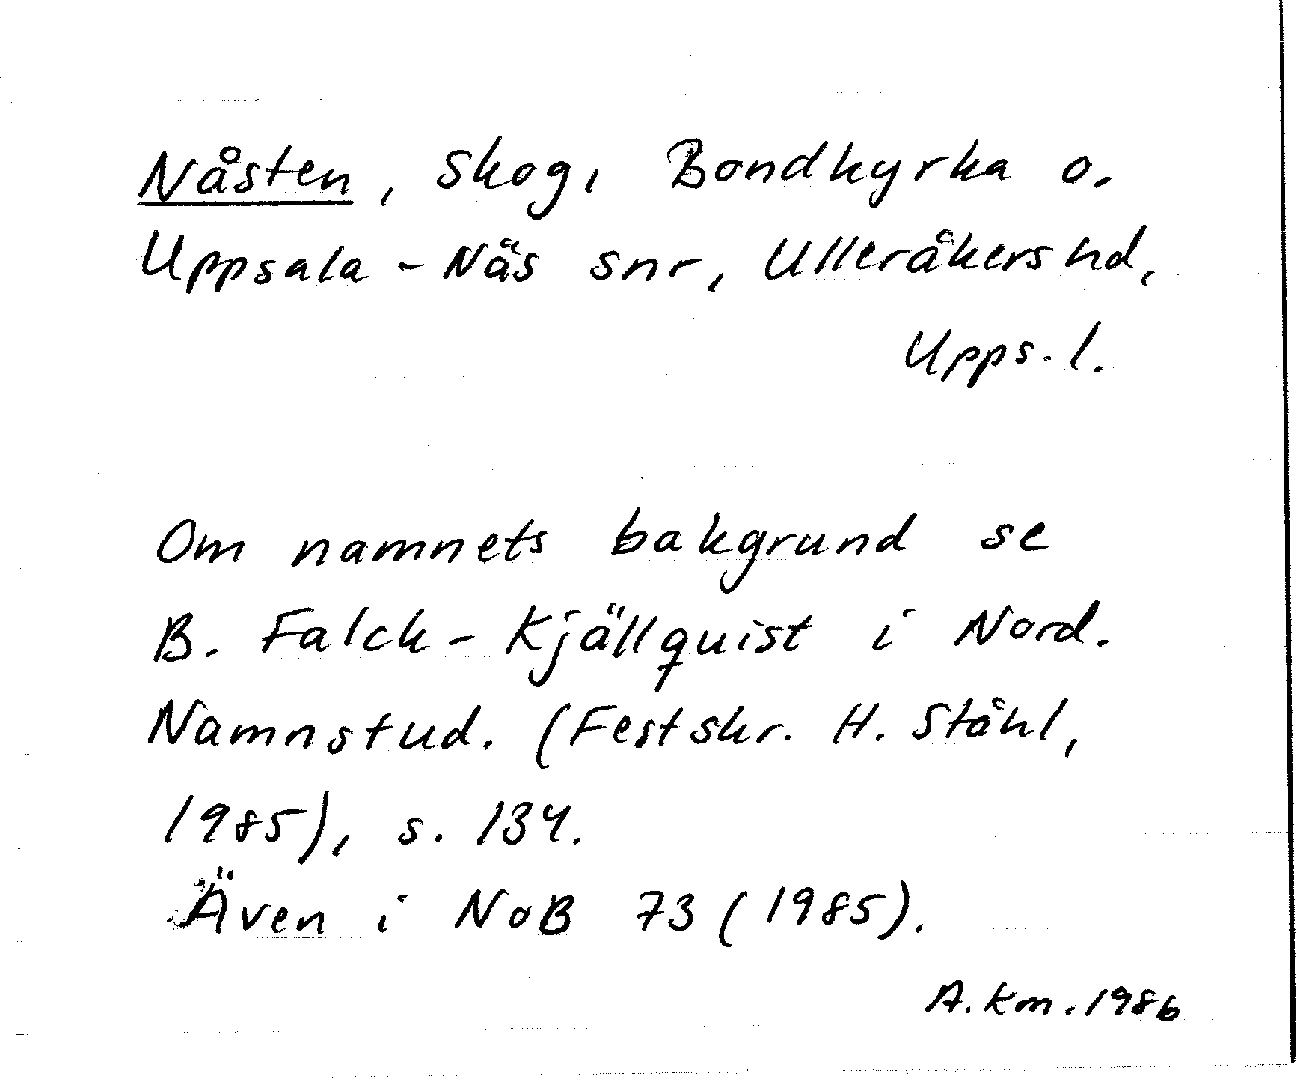 Nåsten, Skog, Bondkyrka o.
Uppsala-Näs snr, Ulleråkers hd,
Upps. l.
Om namnets bakgrund se
B. Falck-Kjällquist i Nord.
Namnstud. (Festskr. H. Ståhl,
1985), s. 134.
Även i NoB 73 (1985).
A. Km. 1986